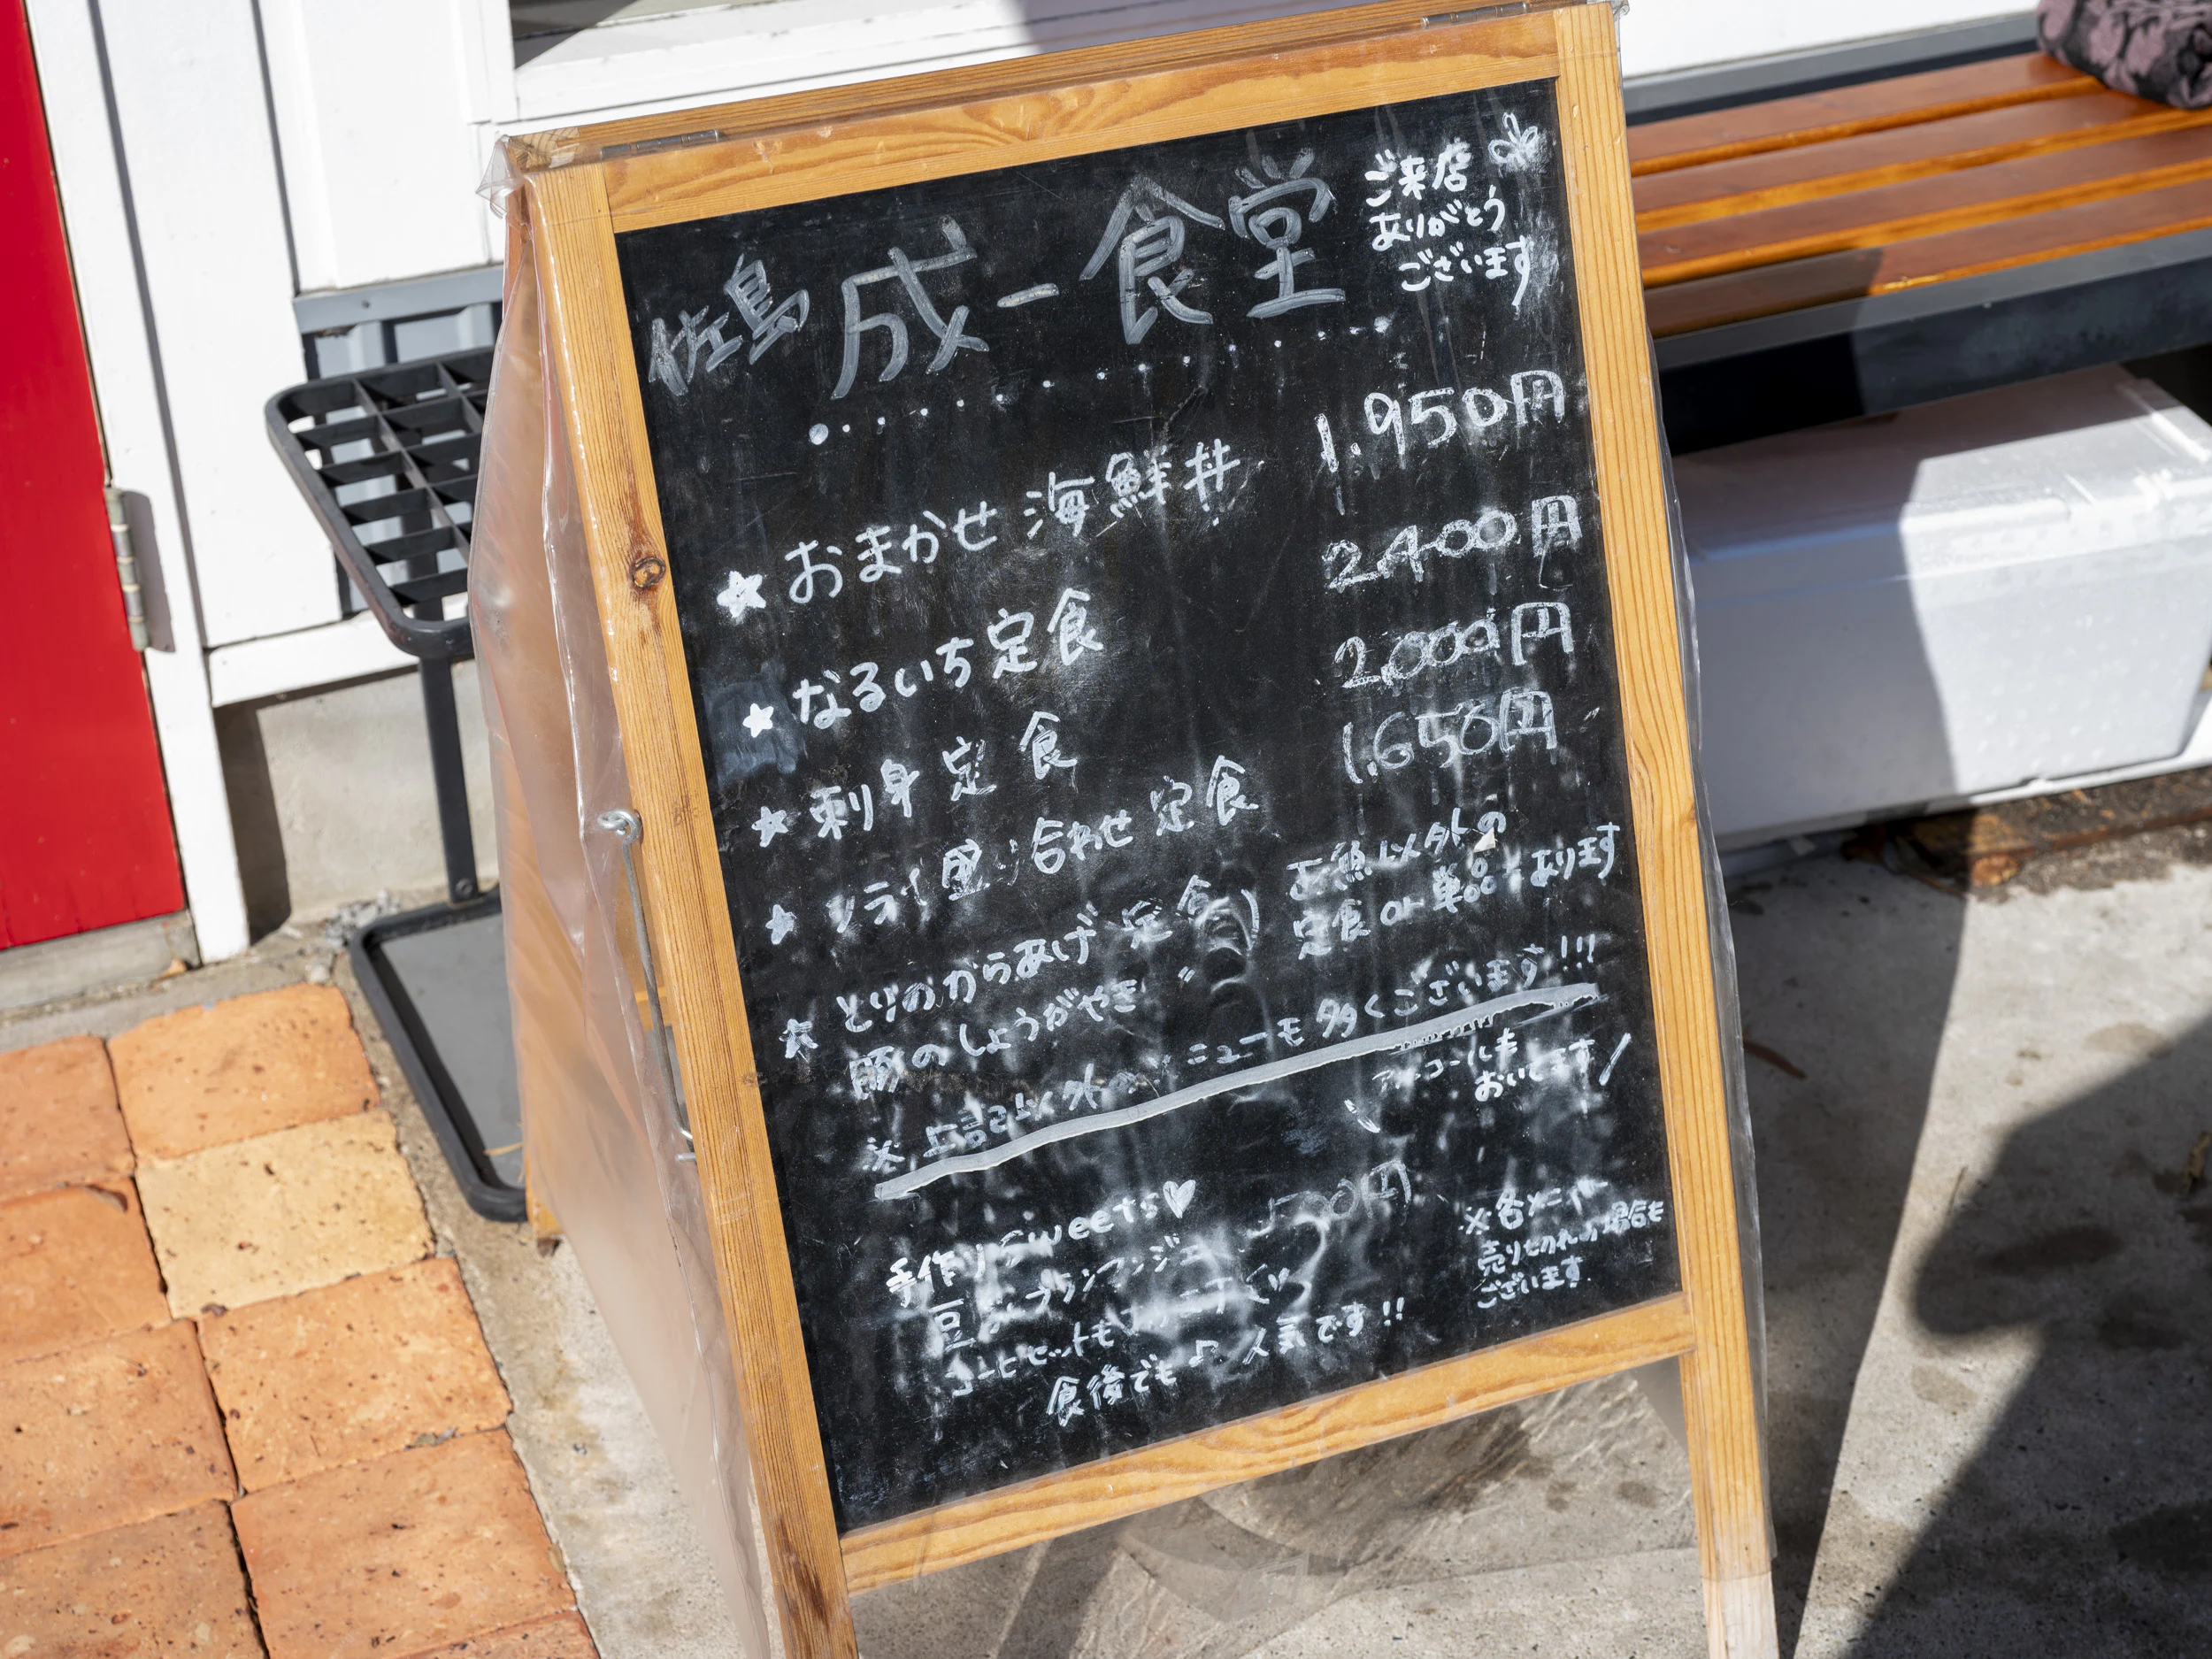 佐島 成一食堂
ご来店
ありがとう
ございます
★ おまかせ 海鮮丼 1.950円
★ なるいち定食 2,400円
★ 刺身定食 2,000円
★ フライ盛り合わせ定食 1.650円
★ とりのからあげ定食
豚のしょうがやき 〃
お魚以外の
定食 or 単品もあります
※ 上記以外のメニューも多くございます!!!
アルコールも
おいてます/
手作りSweets♡
豆 ブランマンジェ 500円
コーヒーセットも
食後でも♪ 人気です!!
※各メニュー
売り切れの場合も
ございます.